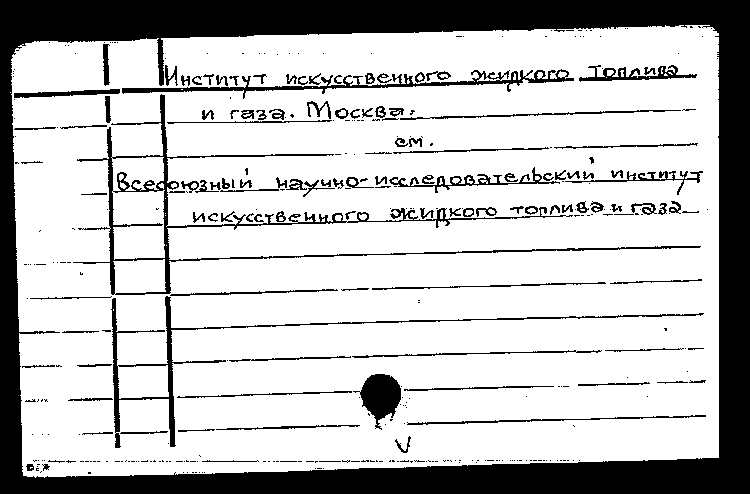 Институт искусственного жидкого топлива
и газа. Москва.
см.
Всесоюзный научно-исследовательский институт
искусственного жидкого топлива и газа
V